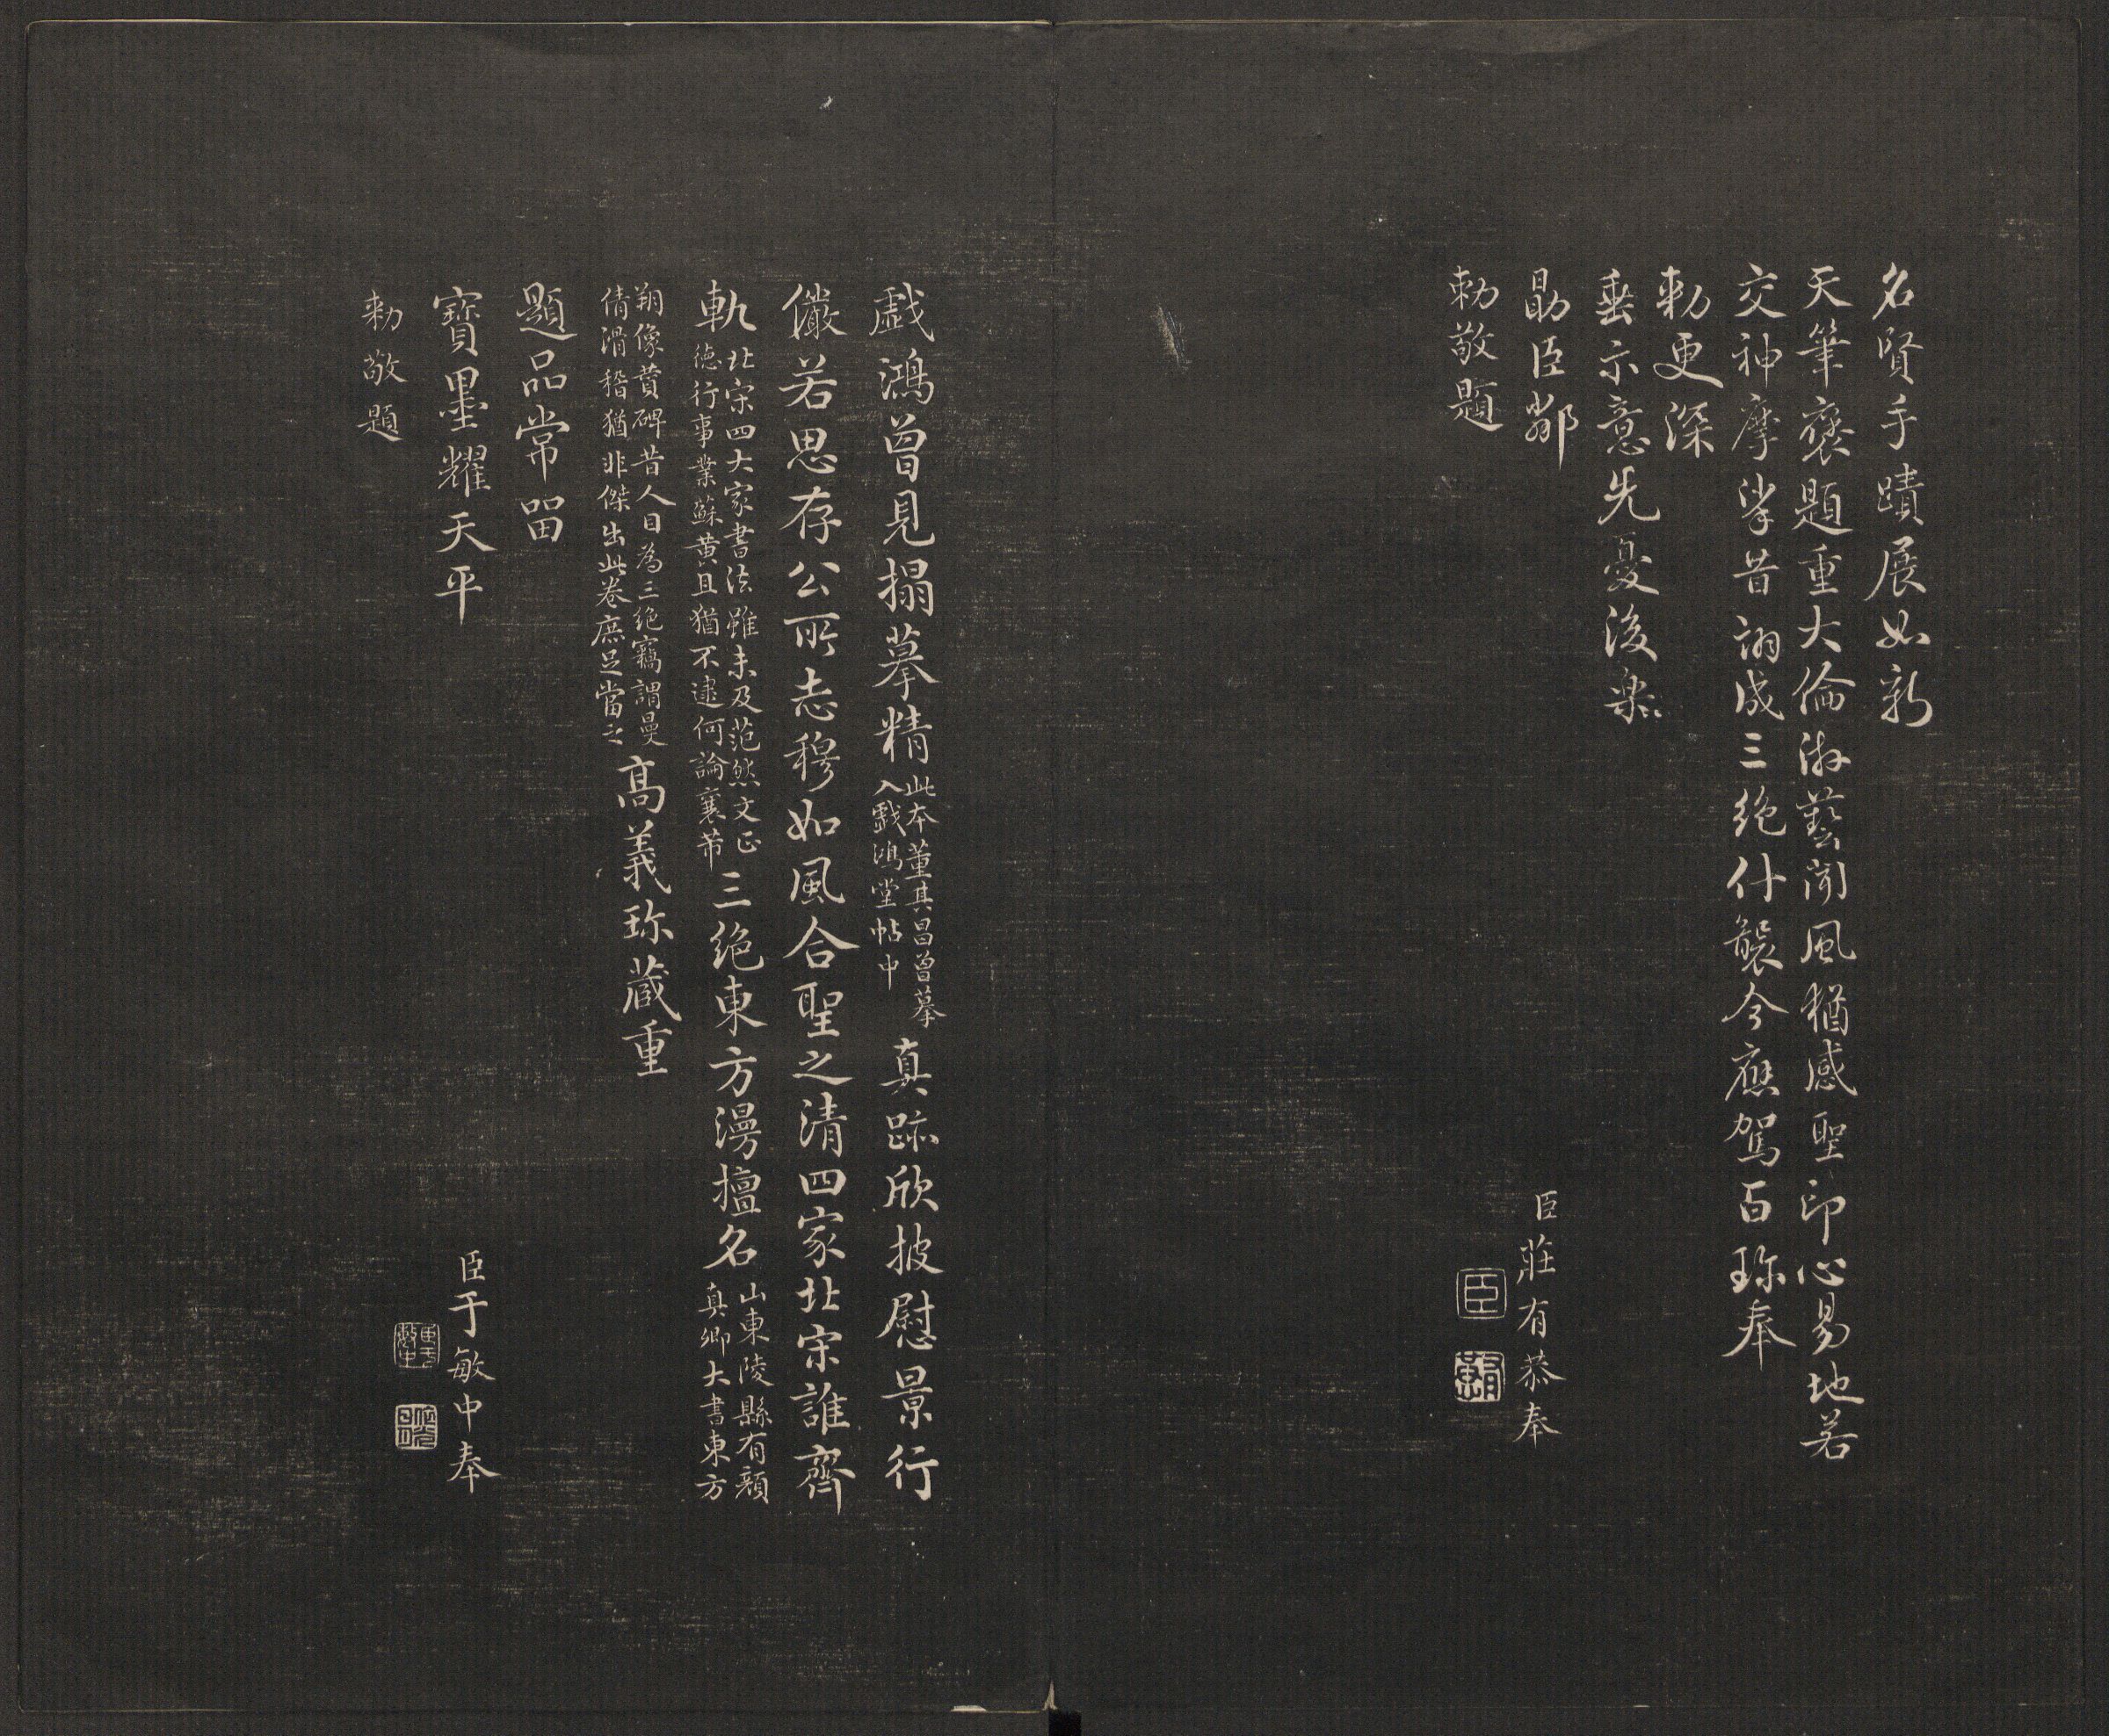 名賢手蹟展如新
天筆褒題重大倫游藝聞風猶感聖印心易地若
交神摩挲昔詡成三絶什襲今應駕百珎奉
勅更深
垂示意先憂後樂
勗臣鄰 臣莊有恭奉
勅敬題
戲鴻曾見搨摹精
此本董其昌曾摹
入戲鴻堂帖中
真跡欣披慰景行
儼若思存公所志穆如風合聖之清四家北宋誰齊
軌
北宋四大家書法雖未及范然文正
德行事業蘇黃且猶不逮何論襄芾
三絶東方漫擅名
山東陵縣有顔
真卿大書東方
朔像賛碑昔人目為三絶竊謂曼
倩滑稽猶非傑出此卷庶足當之
高義珎藏重
題品常畱
寶墨耀天平
臣于敏中奉
勅敬題
臣